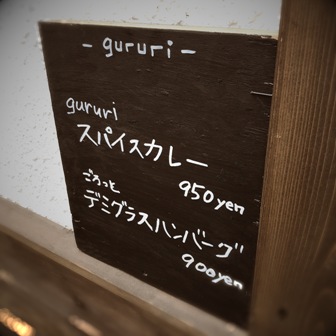 - gururi -
gururi
スパイスカレー
950yen
ごろっと
デミグラスハンバーグ
900yen